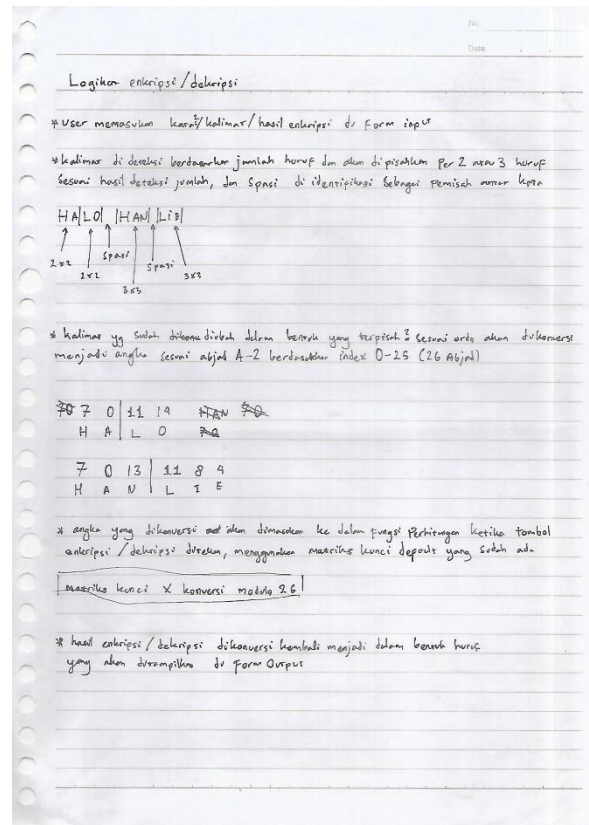 No.
Date
Logika enkripsi/dekripsi
* User memasukan kata²/kalimat/hasil enkripsi di Form input
* kalimat di deteksi berdasarkan jumlah huruf dan akan dipisahkan Per 2 atau 3 huruf
sesuai hasil deteksi jumlah, dan Spasi di identifikasi Sebagai Pemisah antar kata
HA|LO| |HAN|LiE|
2x2
2x2
Spasi
3x3
Spasi
3x3
* kalimat yg sudah diubah dalam bentuk yang terpisah² sesuai ordo akan dikonversi
menjadi angka sesuai abjad A-Z berdasarkan index 0-25 (26 Abjad)
7 0 | 11 14
H A | L O
7 0 13 | 11 8 4
H A N | L I E
* angka yang dikonversi akan dimasukan ke dalam Fungsi Perhitungan ketika tombol
enkripsi/dekripsi ditekan, menggunakan matriks kunci default yang sudah ada
matriks kunci X konversi modulo 26
* hasil enkripsi/dekripsi dikonversi kembali menjadi dalam bentuk huruf
yang akan ditampilkan di Form Output